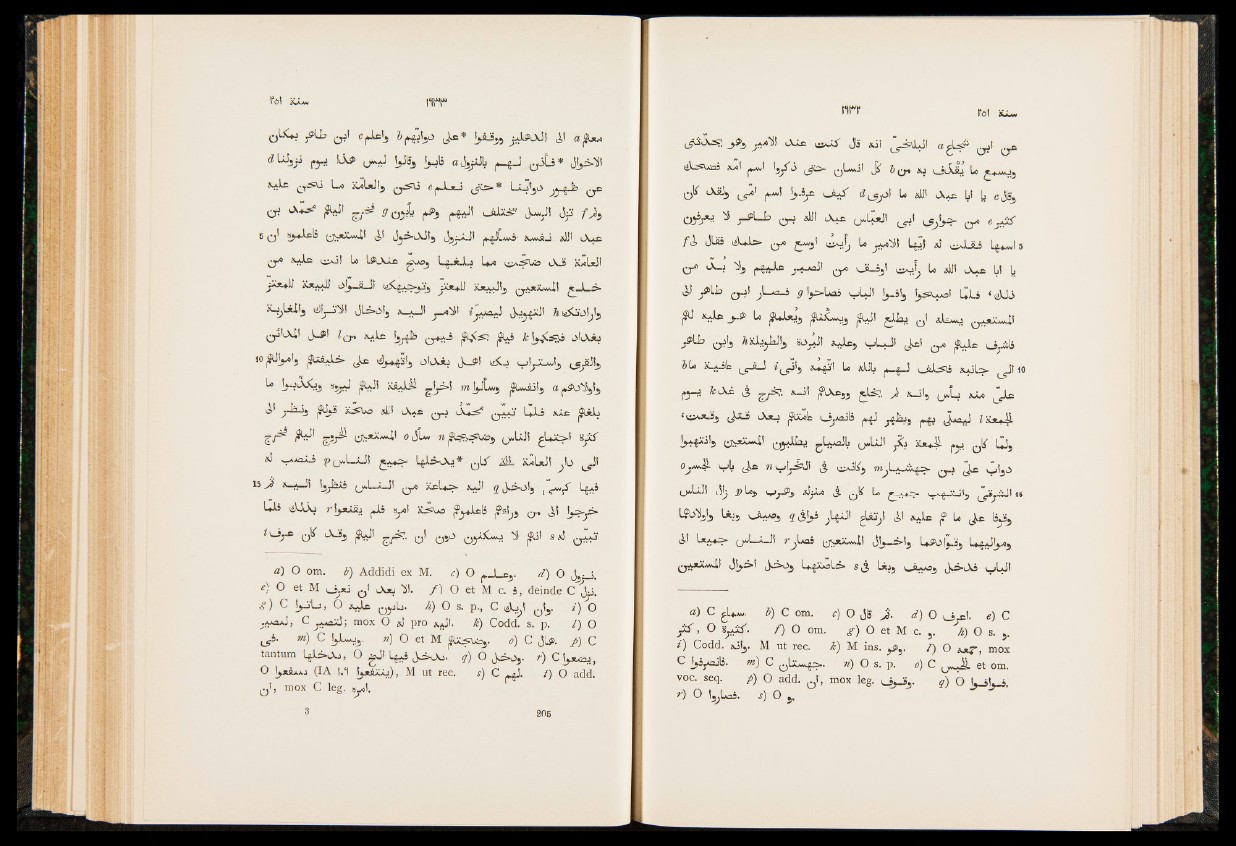 ١٦٣٢ سنة ٢٥١
عن ابن شجاع a البلخيّ انه قال كنت عند الامير وهو يحدّثنى
ويسمع ما يُقذف به من b كلّ انسان حتى ذكروا اسم امّه فضحك
وقال c يا با عبد الله ما ادرى d كيف عرفوا اسم امّى ولقد كان
كثير e من جوارى ابى العبّاس عبد الله بن طاهر لا يعرفون
5 اسمها فقلت له ايّها الامير ما رأيتُ اوسع من حلمك فقال لى f
يا ابا عبد الله ما رأيت اوفق من الصبر عليهم ولا بُدّ من
ذلك، فلمّا اصبحوا وافوا الباب فصاحوا g فصار ابن طاهر الى
المستعين يسئله ان يطلع اليهم ويسكّنهم ويُعلمهم ما هو عليه لهم
فاشرف عليهم من اعلى الباب وعليه البُردة والطويلة h وابن طاهر
10 الى جانبه فحلف لهم بالله ما اتّهمه وانّى i لفى عافية ما b
علىّ منه بأس وانه لم يخلع ووعدهم انه يخرج فى غد k يوم
الجمعة l ليصلّى بهم ويظهر لهم فانصرف عامّتهم بعد قتلى وقعت،
ولمّا كان يوم الجمعة بكّر الناس بالصياح يطلبون المستعين وانتهبوا
دوابّ علىّ بن جهشيار m وكانت فى الخراب n على باب الجسر o
15 الشرقىّ وانتهب جميع ما كان فى منزله وهرب وما p زال الناس
وقوفا على ما هم عليه الى ارتفاع النهار فوافى q وصيف وبغا واولادهما
ومواليهما وقوّادهما واخوال المستعين فصار r الناس جميعا الى
الباب فدخل وصيف وبغا فى s خاصّتهما ودخل اخوال المستعين
a) C سماع. b) C om. c) O قال ثم. d) O اعرف. e) C
كثر, O كثيرة. f) O om. g) O et M c. و. h) O s. و.
i) Codd. وانه. M ut rec. k) M ins. وهو. l) O معه, mox
C فانصرفوا. m) C جهستان. n) O s. p. o) C الجسر et om.
voc. seq. p) O add. ان, mox leg. وقوف. q) O فوافوا.
r) O فصاروا. s) O و.
١٦٣٣ سنة ٢٥١
معهم a الى الدهليز ووقفوا *على دوابّهم b واعلم c ابن طاهر بمكان
الاخوال *فأذن لهم بالنزول a فأبوا وقالوا ليس هذا يوم نزولنا d
عن ظهور دوابّنا *حتى نعلم e نحن والعامّة ما نحن عليه
ولم f تزل الرسل تختلف اليهم وهم يأبون g فخرج اليهم محمّد بن
5 عبد الله نفسه فسألهم النزول والدخول الى المستعين فاعلموه ان
العامّة قد ضجّت مما بلغها وصحّ عندها ما انت عليه من
خلع المستعين والبيعة للمعتز وتوجيهك القوّاد للبيعة للمعتزّ
وارادتك h التهويل ليصير i الامر اليه وادخال الاتراك والمغاربة
بغداد فيحكموا k فيهم بحكمهم فيمن ظهروا عليه من l اهل المدائن
10 والقرى واستراب بك اهل بغداد واتّهموك على خليفتهم واموالهم
واولادهم a وانفسهم وسألوا m اخراج الخليفة اليهم ليروه ويكذّبوا ما
بلغهم عنه فلمّا تبيّن محمّد بن عبد الله صحّة قولهم ونظر الى
كثرة اجتماع الناس وضجيجهم n سأل o المستعين الخروج اليهم فخرج
الى دار العامّة التى *كان يدخلها جميع الناس p فنصب له
15 فيها كرسىّ وادخل q اليه جماعة من الناس فنظروا اليه ثم
خرجوا الى من وراءهم فاعلموهم صحّة امره فلم يقنعوا r بذلك فلمّا
تبيّن له s انهم لا يسكنون دون ان يخرج اليهم وقد كان عرف t
a) O om. b) Addidi ex M. c) O وعلم. d) O نزول.
e) O et M الا بعد ان نعرف. f) O et M c. ف, deinde C نزل.
g) C O عليه. h) O s. p., C وان. i) O
C لتصير; mox O له pro اليه. k) Codd. s. p. l) O
فى. m) C ويسلوا. n) O et M. o) C فقال. p) C
tantum يدخلها, O يدخل فيها الخ. q) O ودخل. r) C
O (IA ١٠٩), M ut rec. s) C لهم. t) O add.
ان, mox C leg. امره.
3 205